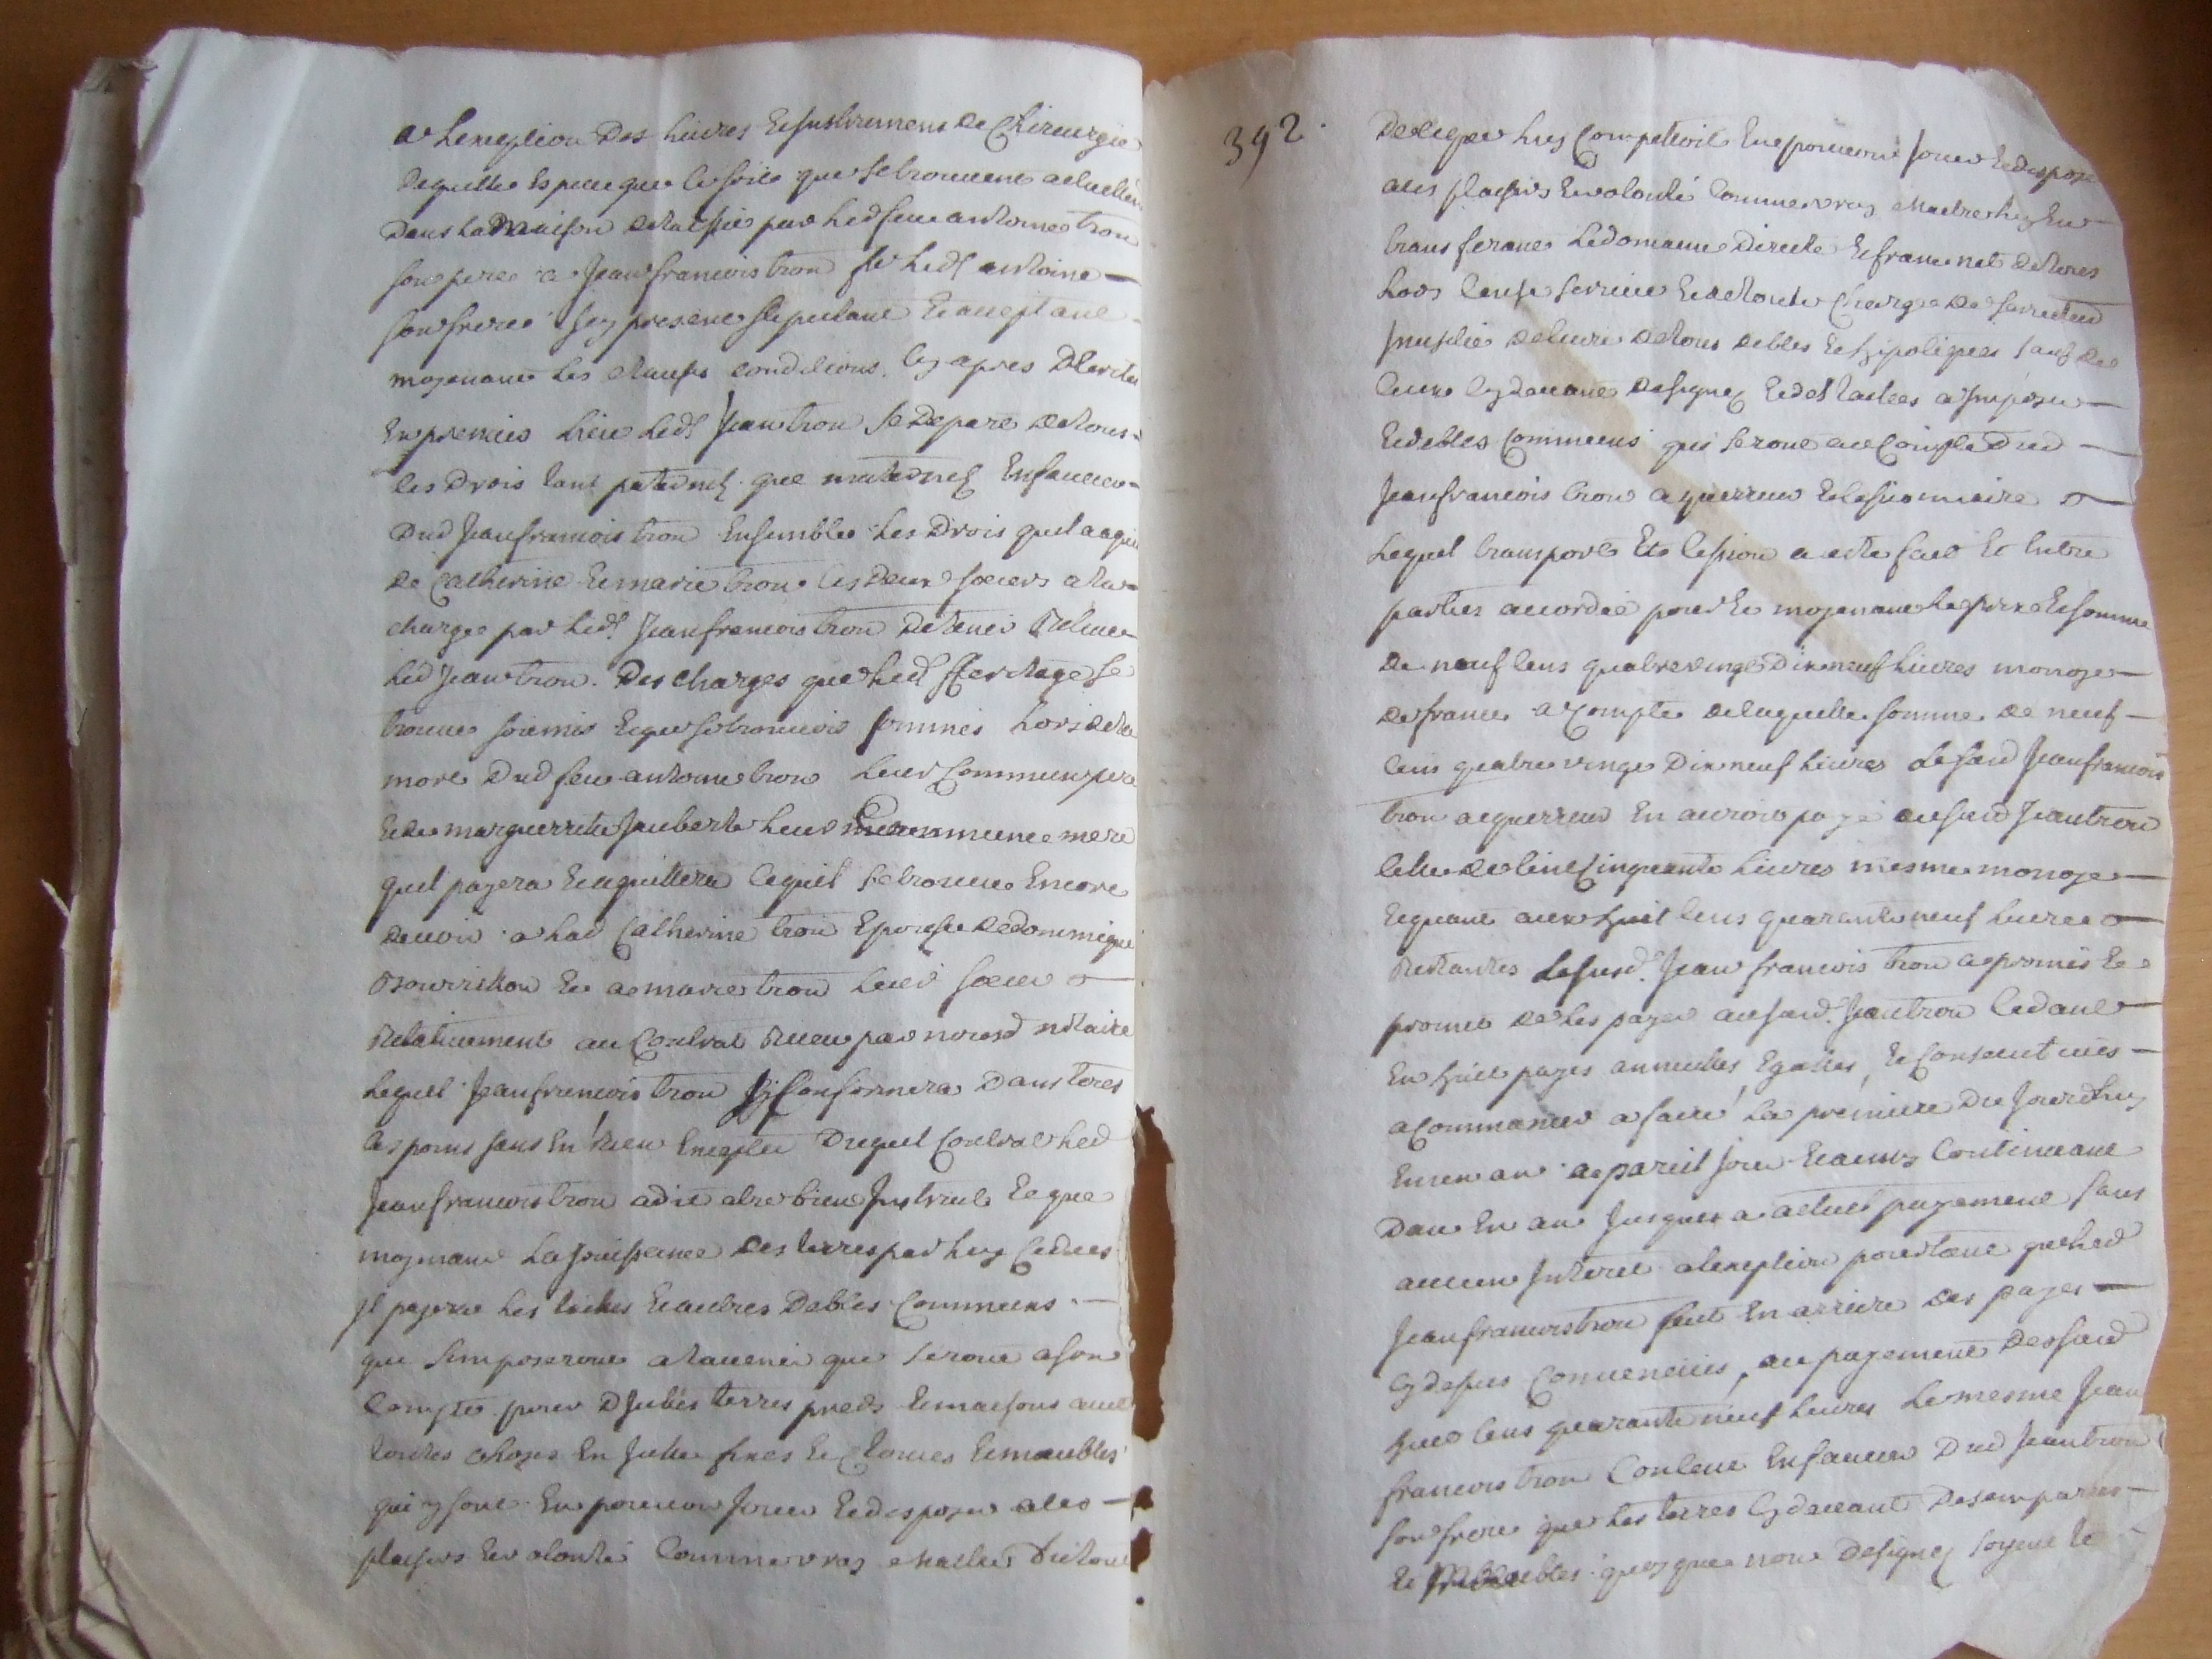 a Lexception Des Livres et Instruments de Chirurgie
de quelle Espece que ce soit que se trouvent actuellem
Dans La Maison delaissée par Led feu antoine tron
son pere a Jean francois tron fs Led antoine
son frere Icy present stipulant et acceptant
moyenant Les clauses conditions cy apres
En premier Lieu Led Jean tron se depart de tous
les Drois tant paternels que maternels En faueur
Dud Jean francois tron Ensemble Les Drois quil a aquis
de Catherine et marie tron ses Deux soeurs a la
charge par Led Jean francois tron de tenir Releue
Led Jean tron Des charges que Led Heritage se
trouue soumis et que se trouuoit soumis Lors de la
mort Dud feu antoine tron Leur Commun pere
et de marguerrite Jaubert Leur commune mere
quil payera et aquittera ce quil se trouue Encore
Deuoir a Lad Catherine tron Epouse de dominique
et a marie tron Leur soeur
Relatiuement au Contrat Receu par nousd notaire
Lequel Jean francois tron sy Conformera Dans tous
les poins sans En Rien Excepter Duquel Contrat Led
Jean francois tron a dit etre bien Instruit et que
moyenant La Jouissance des terres par Luy Cedees
Il payera Les tailles et autres Debtes Communs
que simposeront a lauenir que seront a son
Compte pour Dicelles terres preds et maisons auec
toutes choses En Icelle fixes et Cloues et meubles
qui y sont En pouuoir Jouir et disposer a ses
plaisirs et volonté Comme vray Maitre du tout
392.
De ce que Luy Competoit En pouuoir Jouir et dispos
a ses plaisirs et volonté Comme vray Maitre Luy En
transferant Le domaine Directe et franc net de tous
Lods Cense seruice et de toute Charge de seruitud
Inusitée de taille de tous debtes et hipoteques sauf de
ceux cy deuant designez et des tailles a Imposer
et debtes Communs qui seront au Compte Dud
Jean francois tron aquerreur et Cessionnaire
Lequel transport et Cession a esté fait et Entre
parties accordée pour et moyenant Le prix et somme
de neuf cens quatre vingt Dix neuf Liures monoye
de france a Compte de laquelle somme de neuf
cens quatre vingt Dix neuf Liures Lesaid Jean francois
tron aquerreur En auroit payé ausaid Jean tron
celle de Cent Cinquante Liures mesme monoye
et quant aux huit cens quarante neuf Liures
Restantes Lesusd Jean francois tron a promis et
promet de Les payer ausaid Jean tron Cedant
En huit payes annuelles Egalles, et Consecutiues
a Commancer a faire La premiere Du Jourdhuy
En un an a pareil Jour et ainsy Continuant
Dan En an Jusques a actuel payement sans
aucun Interet a lexception pourtant que Led
Jean francois tron fut En arriere des payes
cy dessus Conuenues, au payement Dessaid
huit cens quarante neuf Liures Le mesme Jean
francois tron Consent En faueur Dud Jean tron
son frere que Les terres cy deuant Desemparées
et Meubles quoy que non Designez soyent